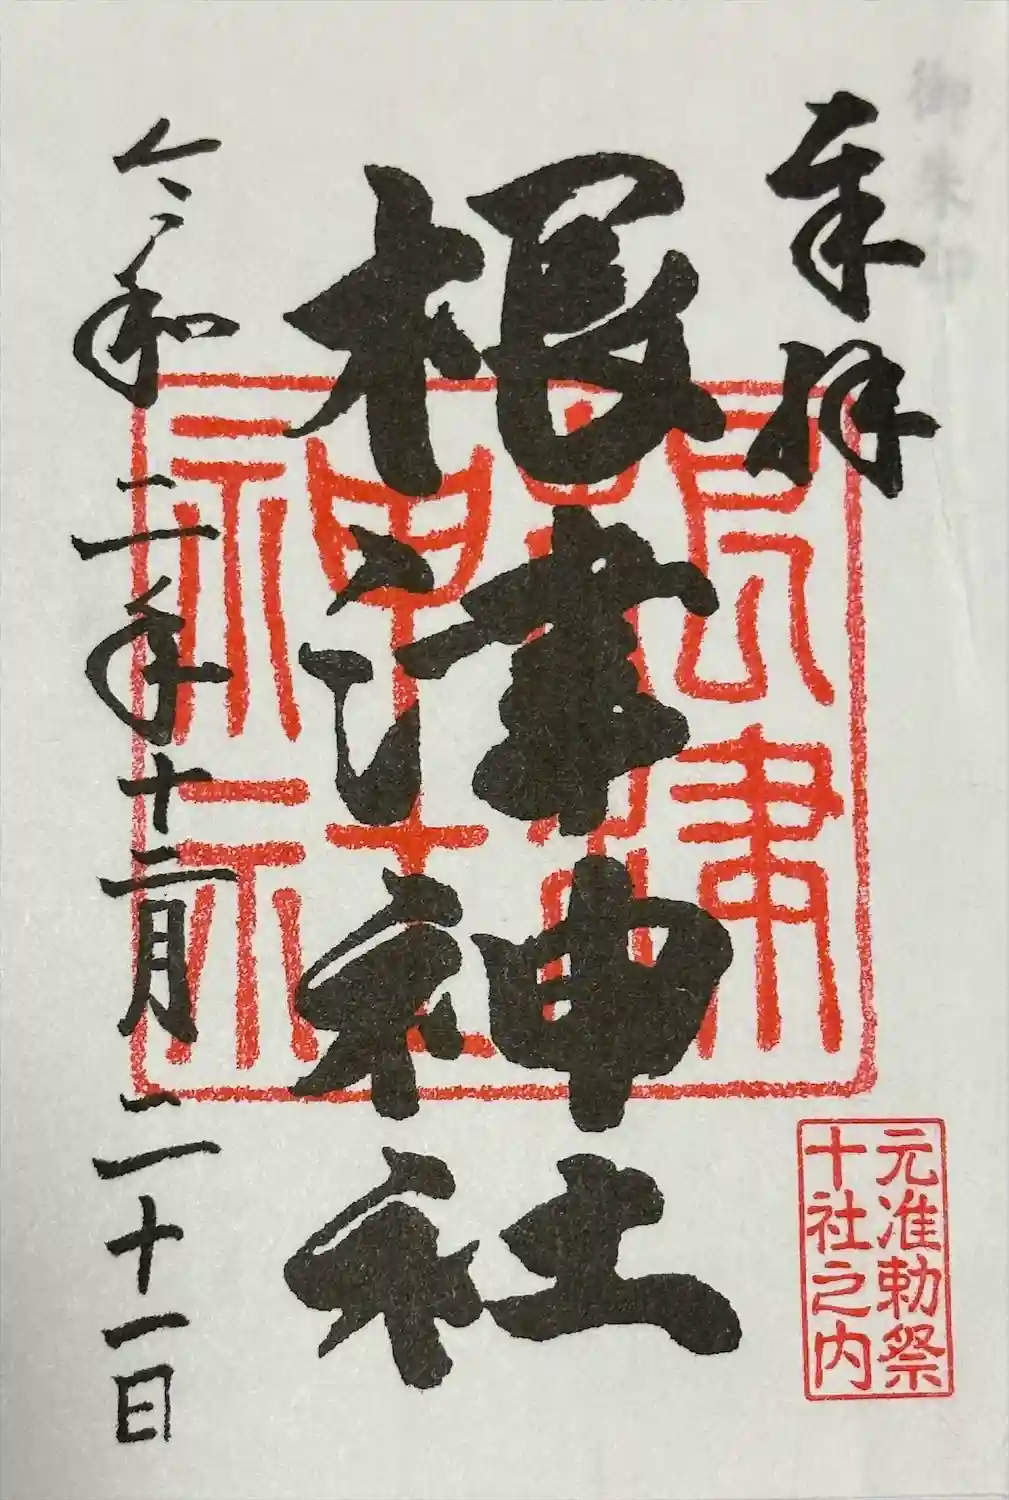 奉拝
根津神社
令和二年十二月二十一日
根津
神社
元准勅祭
十社之内
御朱印